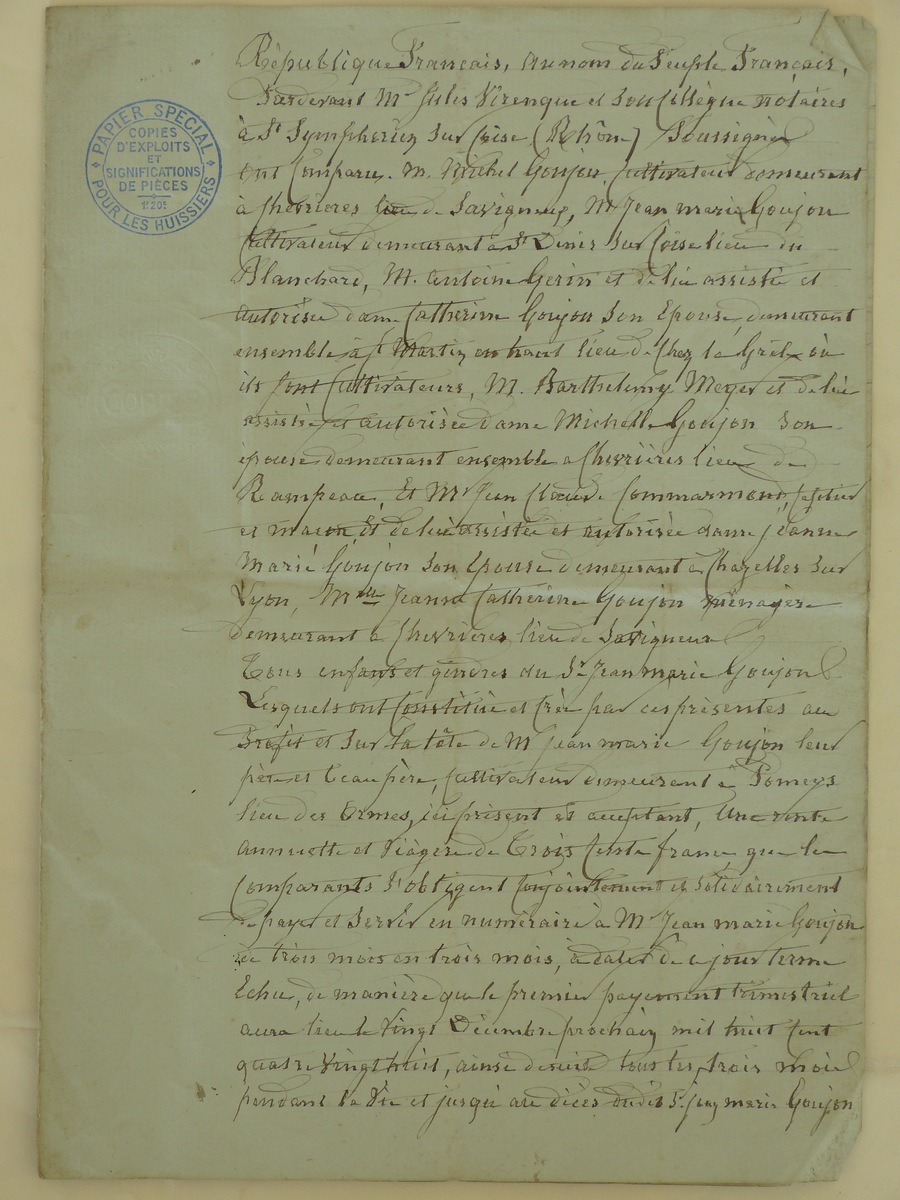 PAPIER SPECIAL
POUR LES HUISSIERS
COPIES
D'EXPLOITS
ET
SIGNIFICATIONS
DE PIÈCES
République Francais, au nom du Peuple Français,
Pardevant Me Jules Virenque et son Collègue notaires
à St Symphorien sur Coise (Rhône) Soussignés
ont Comparu. M. Michel Goujon, Cultivateur demeurant
à Chevrieres lieu de Savigneux, M. Jean marie Goujon
Cultivateur demeurant à St Denis sur Coise lieu du
Blanchard, M. Antoine Gerin et de lui assistée et
autorisée dame Catherine Goujon son Epouse, demeurant
ensemble à St Martin en haut lieu de Chez la Grêle où
ils sont Cultivateurs, M. Barthelemy Meyer et de lui
assistée et autorisée dame Michelle Goujon son
épouse demeurant ensemble a Chevrières lieu de
Rampeau, Et Mr Jean Claude Commarmond,
et macon et de lui assistée et autorisée dame jeanne
Marie Goujon son Epouse demeurant à Chazelles sur
Lyon, Mlle Jeanne Catherine Goujon ménagère
demeurant a Chevrières lieu de Savigneux
Tous enfants et gendres du Sr Jean marie Goujon
Lesquels ont Constitué et Crée par ces présentes au
Profit et sur la tête de M jean marie Goujon leur
père et beau père, Cultivateur demeurent à Pomeys
lieu des Ormes, ici présent et acceptant, Une rente
annuelle et Viagère de Trois Cents francs que les
Comparants s'obligent Conjointement et solidairement
de payer et servir en numéraire à Mr Jean marie Goujon
de trois mois en trois mois, à dater de ce jour terme
Echu, de manière que le premier payement trimestriel
aura lieu le Vingt Décembre prochain mil huit Cent
quatre Vingt huit, ainsi de suite tous les trois mois
pendant la Vie et jusqu'au décès dudit Sr jean marie Goujon